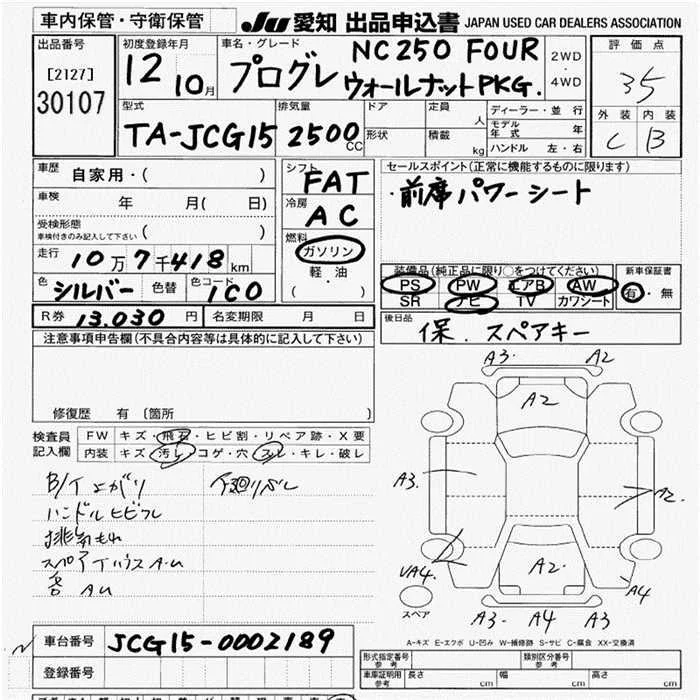 車内保管・守衛保管
JU 愛知 出品申込書 JAPAN USED CAR DEALERS ASSOCIATION
出品番号
[2127]
30107
初度登録年月
12 10月
車名・グレード
プログレ NC250 FOUR
ウォールナットPKG.
2WD
4WD
評価点
35
外装 内装
C B
型式
TA-JCG15
排気量
2500CC
ドア
形状
定員
人
積載
kg
ディーラー・並行
モデル年式 年
ハンドル 左・右
車歴
自家用・( )
車検
年 月( 日)
受検形態
車検付きのみ記入して下さい ( )
走行
10万7千418km
色
シルバー
色替
色コード
1C0
シフト
FAT
冷房
AC
燃料
ガソリン
軽・油
( )
セールスポイント(正常に機能するものに限ります)
・前席パワーシート
装備品(純正品に限り○をつけてください)
PS PW エアB AW
SR ナビ TV カワシート
新車保証書
有・無
R券 13,030円
名変期限 月 日
後日品
保. スペアキー
注意事項申告欄(不具合内容等は具体的に記入して下さい)
修復歴 有〔箇所 〕
検査員
記入欄
FW キズ・飛石・ヒビ割・リペア跡・X要
内装 キズ・汚レ・コゲ・穴・スレ・キレ・破レ
ハンドルヒビワレ
排気もれ
A3. A2
A2
A3.
A2
A2.
VA4.
A4
A3- A4 A3
スペア
A-キズ E-エクボ U-凹み W-補修跡 S-サビ C-腐食 XX-交換済
車台番号
JCG15-0002189
登録番号
形式指定番号
参考
類別区分番号
参考
車庫証明用
参考
長さ cm
幅 cm
高さ cm